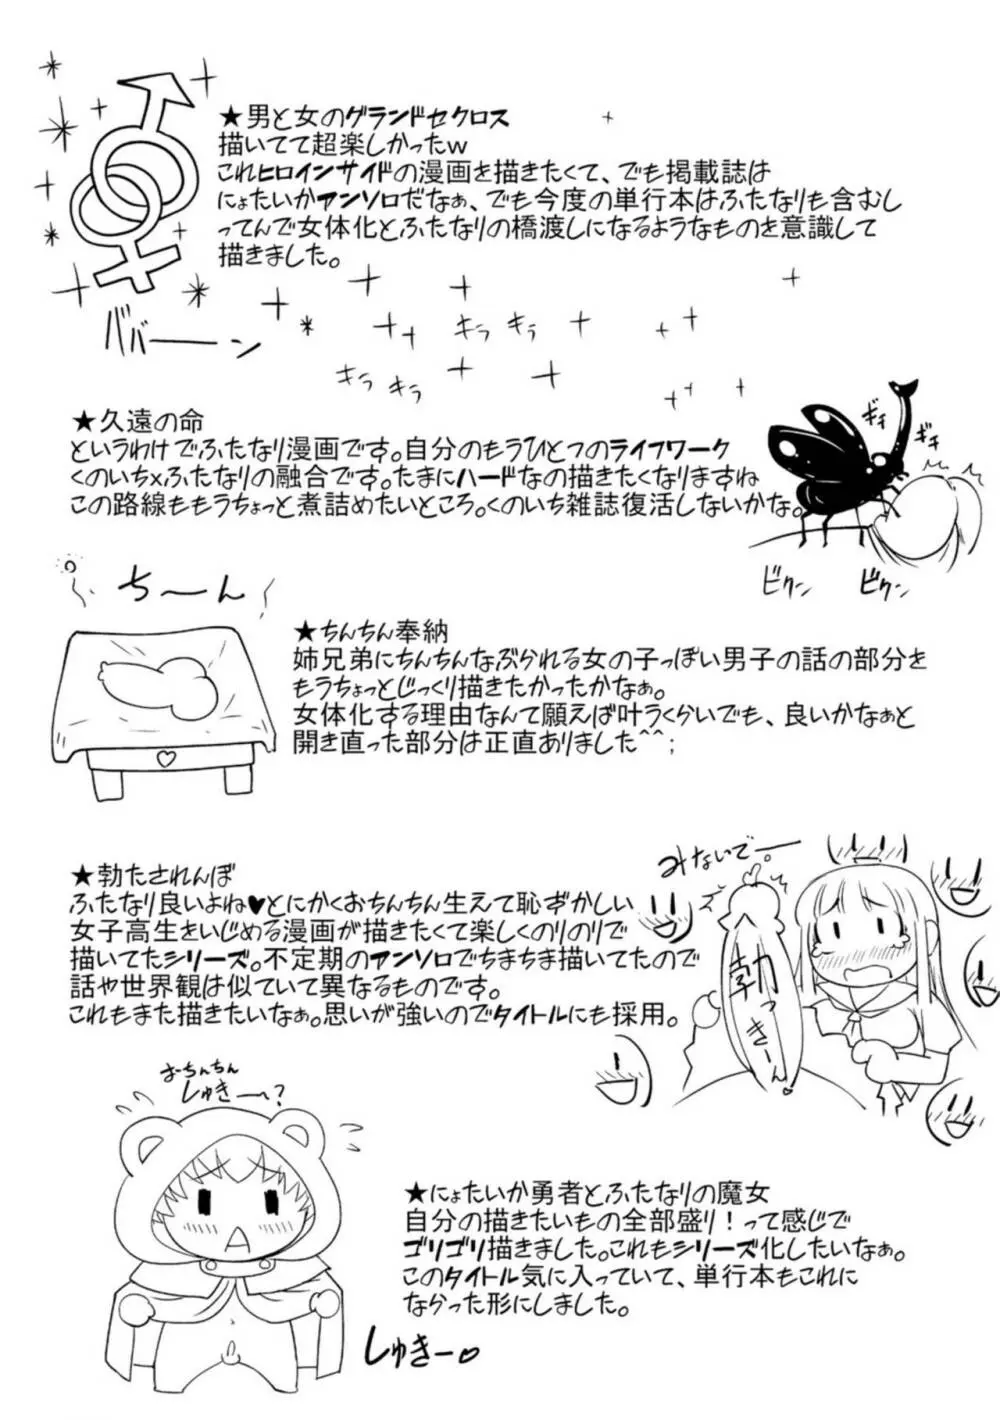 ★男と女のグランドセクロス
描いてて超楽しかったw
これヒロインサイドの漫画を描きたくて、でも掲載誌は
にょたいかアンソロだなぁ、でも今度の単行本はふたなりも含むし
ってんで女体化とふたなりの橋渡しになるようなものを意識して
描きました。
ババーーン
キラ キラ
キラ キラ
★久遠の命
というわけでふたなり漫画です。自分のもうひとつのライフワーク
くのいち×ふたなりの融合です。たまにハードなの描きたくなりますね
この路線ももうちょっと煮詰めたいところ。くのいち雑誌復活しないかな。
ギチ
ギチ
ビクン
ビクン
ち〜ん
★ちんちん奉納
姉兄弟にちんちんなぶられる女の子っぽい男子の話の部分を
もうちょっとじっくり描きたかったかなぁ。
女体化する理由なんて願えば叶うくらいでも、良いかなぁと
開き直った部分は正直ありました^^;
★勃たされんぼ
ふたなり良いよね♥とにかくおちんちん生えて恥ずかしい
女子高生をいじめる漫画が描きたくて楽しくのりのりで
描いてたシリーズ。不定期のアンソロでちまちま描いてたので
話や世界観は似ていて異なるものです。
これもまた描きたいなぁ。思いが強いのでタイトルにも採用。
みないで。ーー
勃っきーん♡
おちんちん
しゅき〜?
★にょたいか勇者とふたなりの魔女
自分の描きたいもの全部盛り！って感じで
ゴリゴリ描きました。これもシリーズ化したいなぁ。
このタイトル気に入っていて、単行本もこれに
ならった形にしました。
しゅきー♡